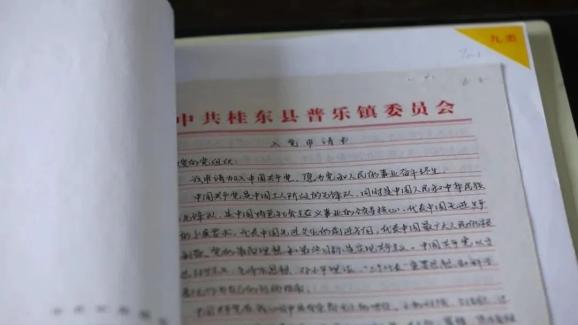 九类
中共桂东县普乐镇委员会
入党申请书
敬的党组织：
我申请加入中国共产党，愿为党和人民的事业奋斗终生。
中国共产党是中国工人阶级的先锋队，同时是中国人民和中华民族
先锋队，是中国特色社会主义事业的领导核心，代表中国先进生产
的发展要求，代表中国先进文化的前进方向，代表中国最广大人民的根本
利益。党的最高理想和最终目标是实现共产主义。中国共产党以马
列主义、毛泽东思想、邓小平理论、“三个代表”重要思想
作为自己的行动指南。
中国共产党在我心中